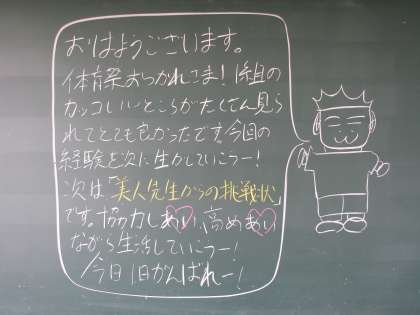 おはようございます。
体育祭おつかれさま！1組の
カッコいいところがたくさん見ら
れてとても良かったです。今回の
経験を次に生かしていこうー！
次は「美人先生からの挑戦状」
です。協力しあい、高めあい
ながら生活していこうー！
今日1日がんばれー！